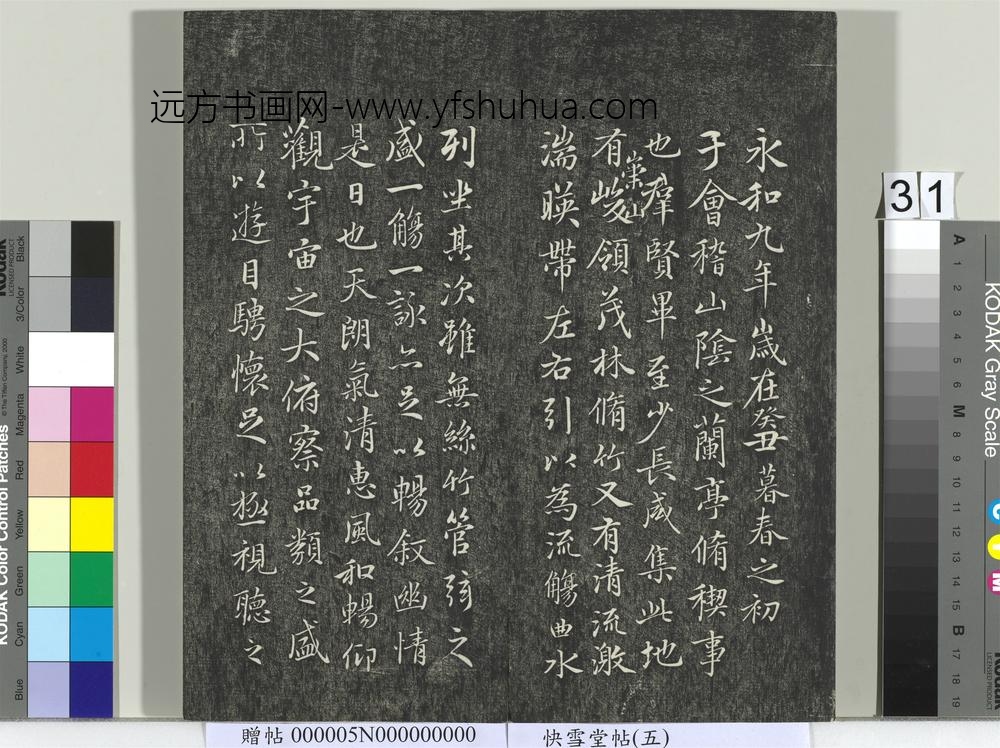 永和九年歲在癸丑暮春之初
于會稽山陰之蘭亭脩稧事
也羣賢畢至少長咸集此地
有崇山峻領茂林脩竹又有清流激
湍暎帶左右引以為流觴曲水
列坐其次雖無絲竹管弦之
盛一觴一詠亦足以暢叙幽情
是日也天朗氣清惠風和暢仰
觀宇宙之大俯察品類之盛
所以遊目騁懷足以極視聽之
远方书画网-www.yfshuhua.com
31
贈帖 000005N000000000
快雪堂帖(五)
KODAK Color Control Patches
© The Tiffen Company, 2000
Kodak
LICENSED PRODUCT
Blue Cyan Green Yellow Red Magenta White 3/Color Black
KODAK Gray Scale
A 1 2 3 4 5 6 M 8 9 10 11 12 13 14 15 B 17 18 19
C Y M
Kodak
LICENSED PRODUCT